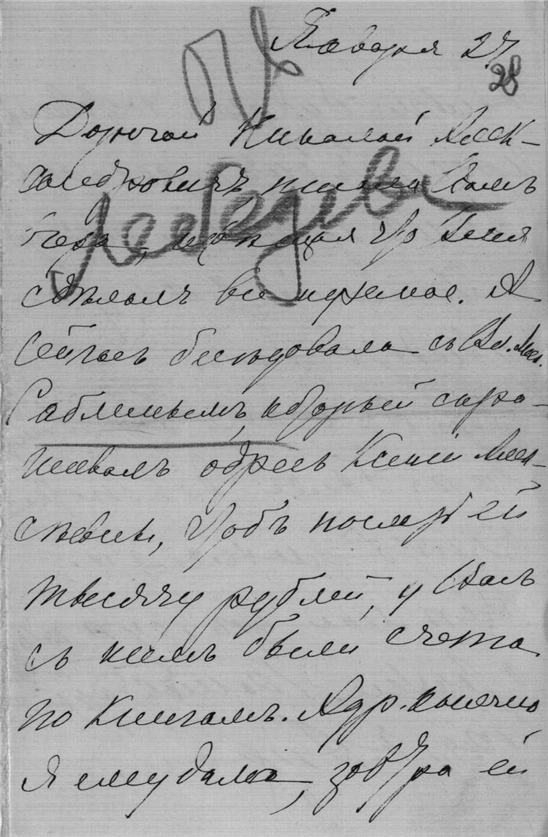 Января 27
28
Лебедева
Дорогой Николай Алек-
сандровичъ писала Вамъ
вчера,
сдѣлалъ все нужное. Я
сейчасъ бесѣдовала съ Вл. Мих.
Саблинымъ, который спра-
шивалъ адресъ Ксеніи Алек-
сѣевны, чтобъ послать ей
тысячу рублей, у Васъ
съ нимъ были счета
по книгамъ. Адр. конечно
я ему дала, завтра ей